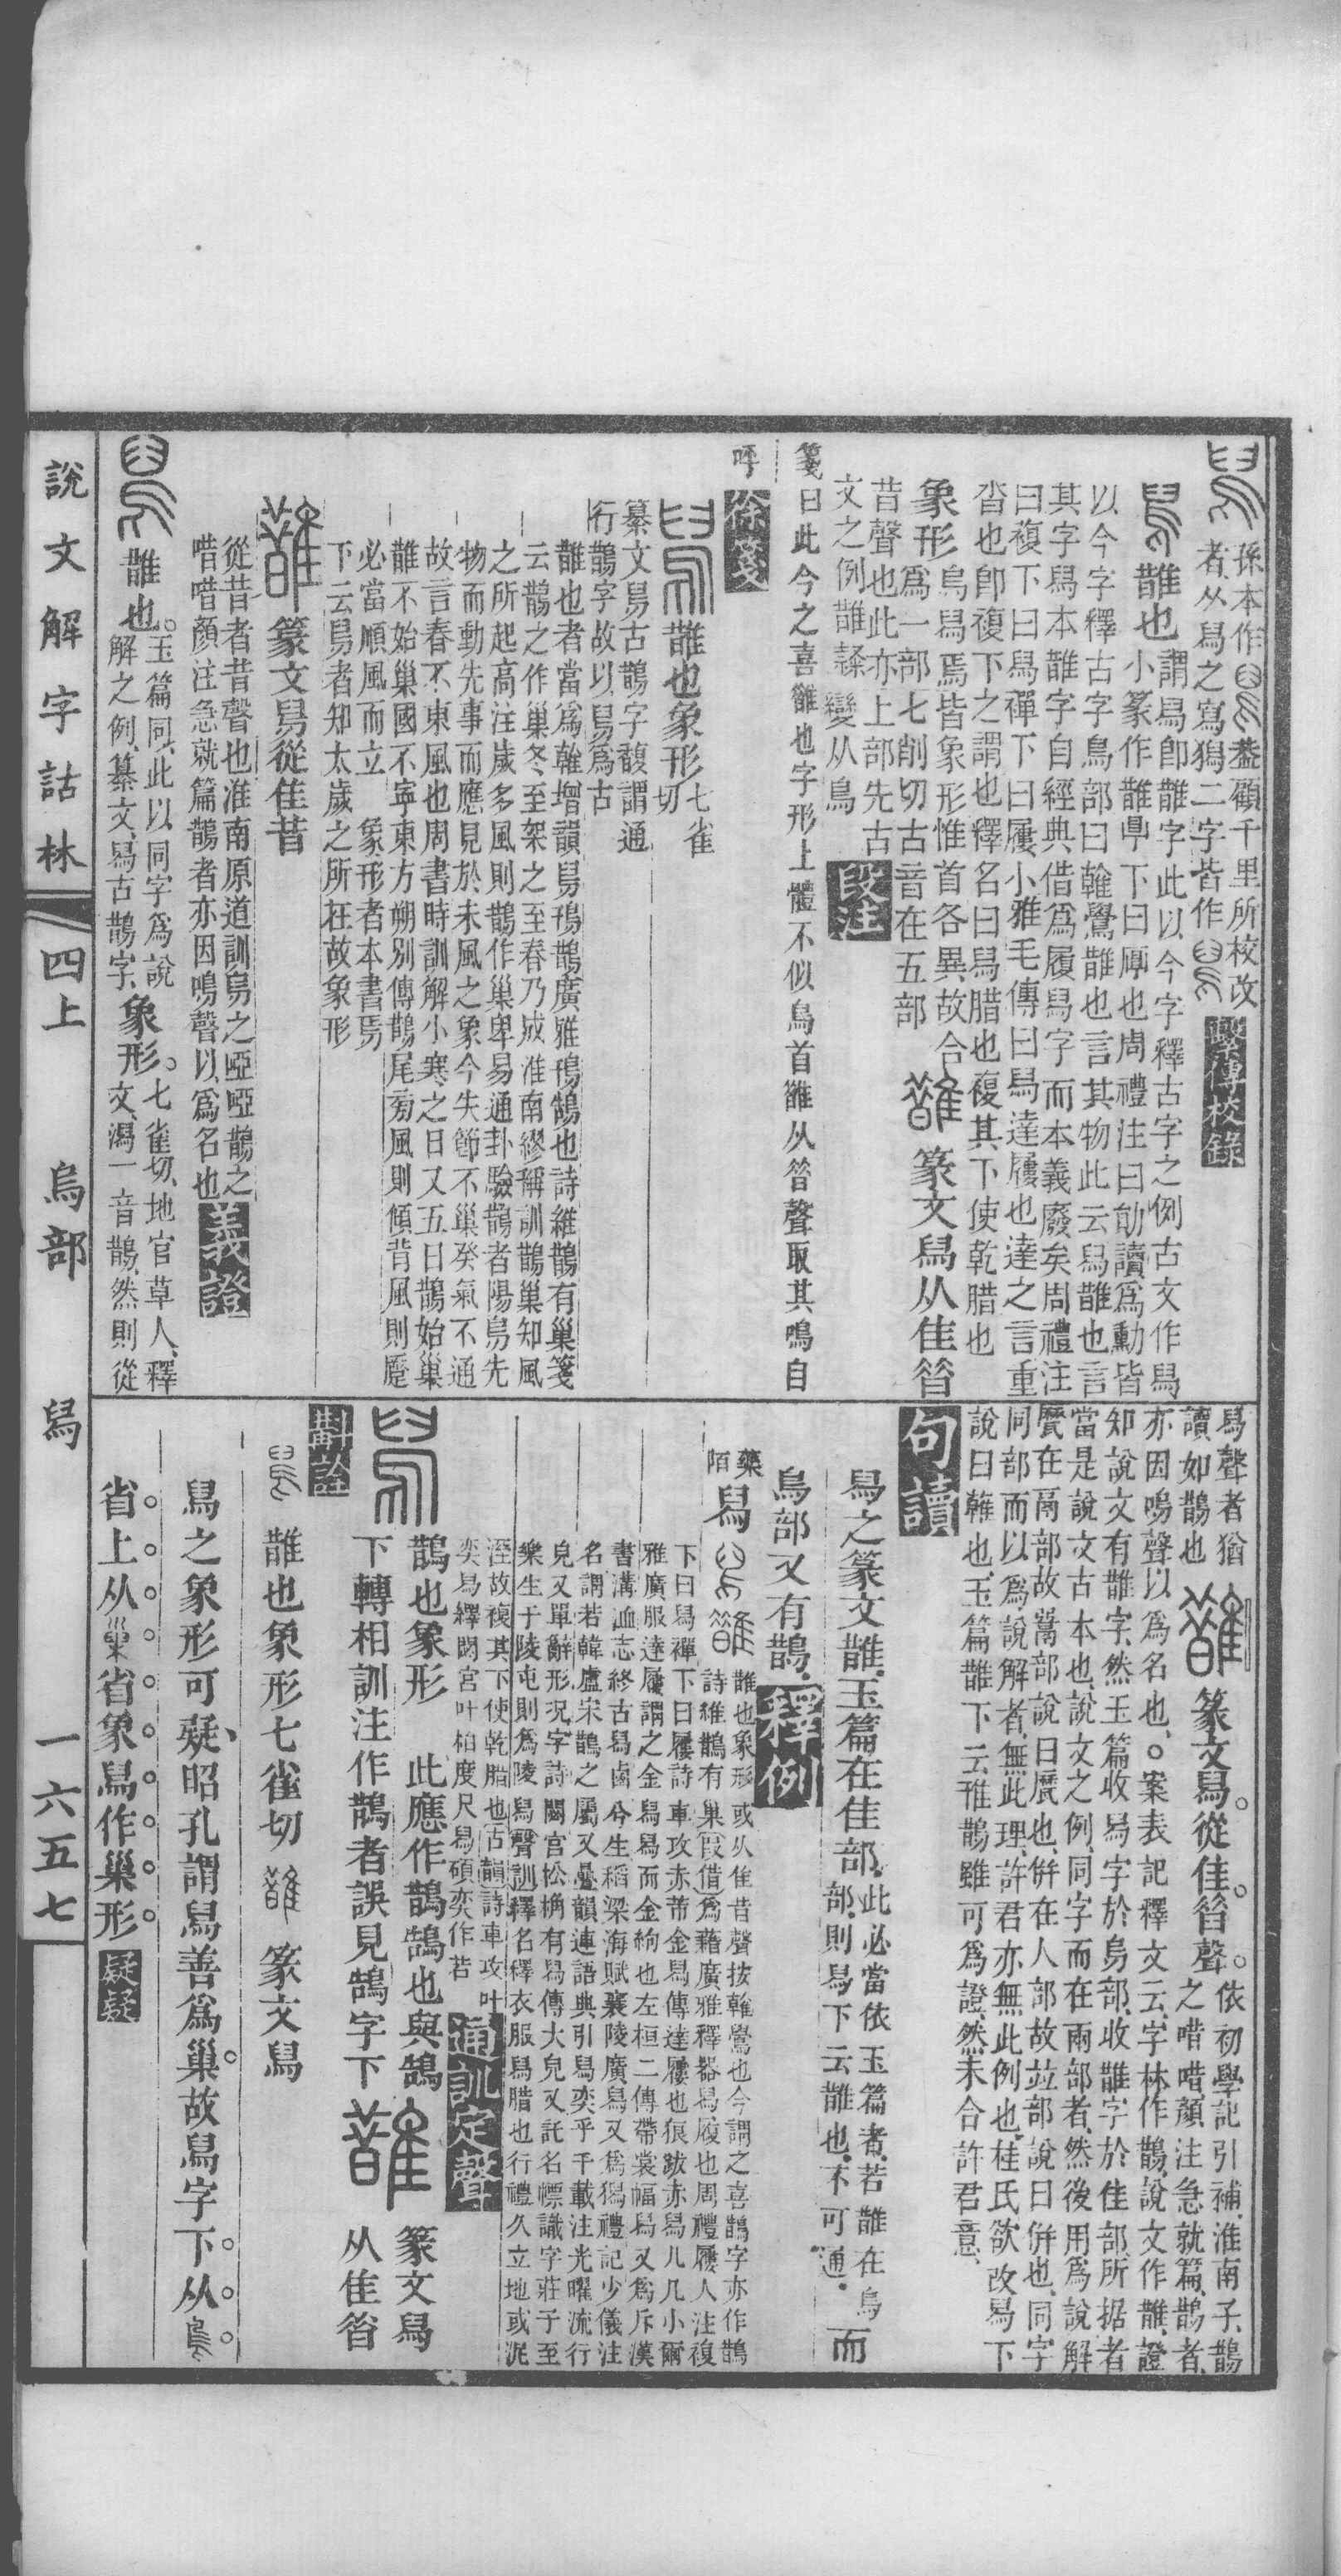 孫本作蓋顧千里所校改
者从舃之寫㵸二字皆作
繫傳校錄
誰也謂舃卽䧿字此以今字釋古字之例古文作舃
小篆作䧿
以今字釋古字鳥部曰鶾鷽䧿也言其物此云舃䧿也言
其字舃本䧿字自經典借爲履舃字而本義廢矣周禮注
曰複下曰舃襌下曰屨小雅毛傳曰舃達屨也達之言重
沓也卽複下之謂也釋名曰舃腊也複其下使乾腊也
象形烏舃焉皆象形惟首各異故合
爲一部七削切古音在五部
篆文舃从隹㫺
㫺聲也此亦上部先古
文之例䧿隸變从鳥
段注
箋曰此今之喜䧿也字形上體不似鳥首䧿从㫺聲取其鳴自
呼
徐箋
䧿也象形七雀切
纂文舄古鵲字馥謂通
行鵲字故以舄爲古
䧿也者當爲雗增韻舄鳱鵲廣雅鳱鵠也詩維鵲有巢箋
云鵲之作巢冬至架之至春乃成淮南繆稱訓鵲巢知風
之所起高注歲多風則鵲作巢卑易通卦驗鵲者陽鳥先
物而動先事而應見於未風之象今失節不巢癸氣不通
故言春不東風也周書時訓解小寒之日又五日鵲始巢
䧿不始巢國不寧東方朔別傳鵲尾旁風則傾背風則蹷
必當順風而立 象形者本書焉
下云舄者知太歲之所在故象形
篆文舄從隹昔
從昔者昔聲也淮南原道訓舄之啞啞鵲之
唶唶顏注急就篇鵲者亦因鳴聲以爲名也
義證
䧿也。玉篇同此以同字爲說
解之例纂文舄古鵲字
象形。七雀切地官草人釋
文潟一音鵲然則從
舄聲者猶
讀如鵲也
篆文舄。從隹。㫺聲。依初學記引補淮南子鵲
之唶唶顏注急就篇鵲者
亦因鳴聲以爲名也○案表記釋文云字林作鵲說文作䧿證
知說文有䧿字然玉篇收舄字於烏部收䧿字於隹部所据者
當是說文古本也說文之例同字而在兩部者然後用爲說解
在鬲部故部說曰也倂在人部故竝部說曰倂也同字
同部而以爲說解者無此理許君亦無此例也桂氏欲改舄下
說曰雗也玉篇䧿下云鵲雖可爲證然未合許君意
句讀
舄之篆文䧿玉篇在隹部此必當依玉篇者若䧿在烏
部則舄下云䧿也不可通而
鳥部又有鵲
釋例
藥
陌
舄
䧿也象形或从隹昔聲按雗鷽也今謂之喜鵲字亦作鵲
詩維鵲有巢假借爲藉廣雅釋器舄履也周禮屨人注複
下曰舄襌下曰屨詩車攻赤芾金舄傳達屨也狼跋赤舄几几小爾
雅廣服達屨謂之金舄舄而金絇也左桓二傳帶裳幅舄又爲斥漢
書溝洫志終古舄鹵兮生稻粱海賦襄陵廣舄又爲㵸禮記少儀注
名謂若韓盧宋鵲之屬又疊韻連語典引舄奕乎千載注光曜流行
皃又單辭形況字詩閟宫松桷有舄傳大皃又託名幖識字莊子至
樂生于陵屯則爲陵舄聲訓釋名釋衣服舄腊也行禮久立地或泥
溼故複其下使乾腊也古韻詩車攻叶
奕舄繹閟宮叶柏度尺舄碩奕作若
通訓定聲
鵲也象形 此應作鵲鵠也與鵠
下轉相訓注作鵲者誤見鵠字下
篆文舃
从隹㫺
斠詮
䧿也象形七雀切 篆文舃
舃之象形可疑昭孔謂舃善爲巢故舃字下从
省上从巢省象舃作巢形
疑疑
說文解字詁林 四上 烏部 舃 一六五七